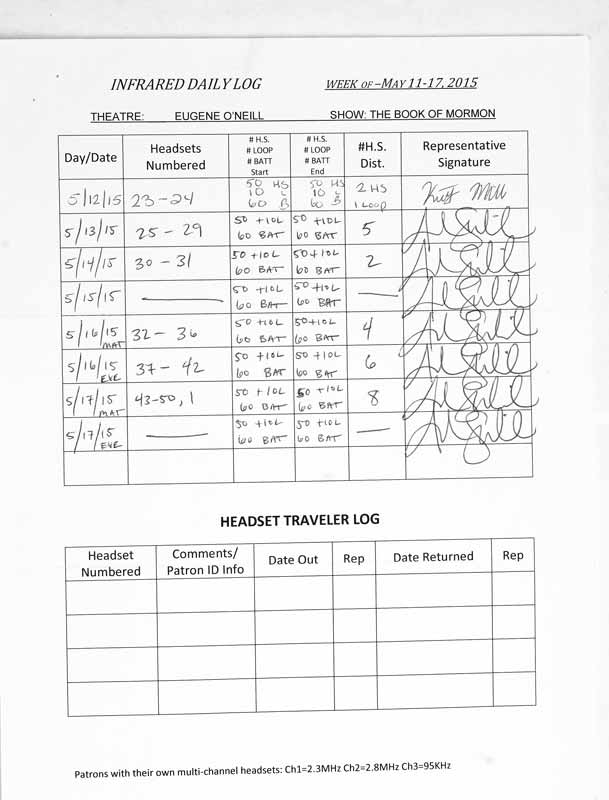 INFRARED DAILY LOG WEEK OF –MAY 11-17, 2015
THEATRE: EUGENE O'NEILL SHOW: THE BOOK OF MORMON
Day/Date Headsets Numbered # H.S. # LOOP # BATT Start # H.S. # LOOP # BATT End #H.S. Dist. Representative Signature
5/12/15 23-24 50 HS 10 L 60 B 50 HS 10 L 60 B 2 HS 1 LOOP
5/13/15 25-29 50 +10L 60 BAT 50 +10L 60 BAT 5
5/14/15 30-31 50 +10L 60 BAT 50+10L 60 BAT 2
5/15/15 50 +10L 60 BAT 50 +10L 60 BAT
5/16/15 MAT 32-36 50 +10L 60 BAT 50+10L 60 BAT 4
5/16/15 EVE 37-42 50 +10L 60 BAT 50 +10L 60 BAT 6
5/17/15 MAT 43-50, 1 50 +10L 60 BAT 50 +10L 60 BAT 8
5/17/15 EVE 50 +10L 60 BAT 50 +10L 60 BAT
HEADSET TRAVELER LOG
Headset Numbered Comments/ Patron ID Info Date Out Rep Date Returned Rep
Patrons with their own multi-channel headsets: Ch1=2.3MHz Ch2=2.8MHz Ch3=95KHz